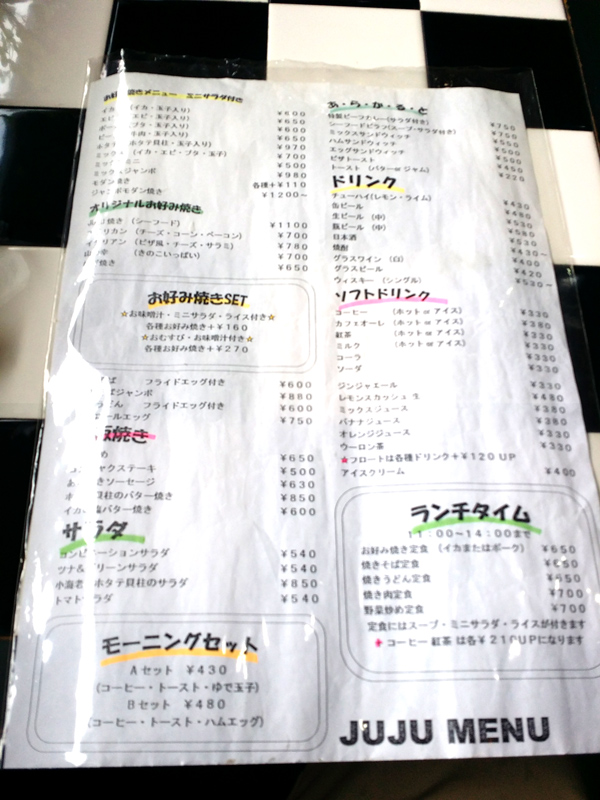 焼きメニュー ミニサラダ付き
(イカ・玉子入り) ¥600
(エビ・玉子入り) ¥650
(ブタ・玉子入り) ¥600
(牛肉・玉子入り) ¥650
(ホタテ貝柱・玉子入り) ¥970
(イカ・エビ・ブタ・玉子) ¥700
ミニ ¥500
ジャンボ ¥980
モダン焼き 各種+¥110
ジャンボモダン焼き ¥1200~
オリジナルお好み焼き
焼き (シーフード) ¥1100
リカン (チーズ・コーン・ベーコン) ¥700
イタリアン (ピザ風・チーズ・サラミ) ¥780
(きのこいっぱい) ¥700
焼き ¥650
お好み焼きSET
☆お味噌汁・ミニサラダ・ライス付き☆
各種お好み焼き+¥160
☆おむすび・お味噌汁付き☆
各種お好み焼き+¥270
そば フライドエッグ付き ¥600
ジャンボ ¥880
うどん フライドエッグ付き ¥600
ールエッグ ¥750
板焼き
¥650
ャクステーキ ¥500
きソーセージ ¥630
貝柱のバター焼き ¥850
イカ バター焼き ¥600
サラダ
コンビネーションサラダ ¥540
ツナ&グリーンサラダ ¥540
小海老 ホタテ貝柱のサラダ ¥850
トマトサラダ ¥540
モーニングセット
Aセット ¥430
(コーヒー・トースト・ゆで玉子)
Bセット ¥480
(コーヒー・トースト・ハムエッグ)
あ・ら・か・る・と
特製ビーフカレー(サラダ付き) ¥750
シーフードピラフ(スープ・サラダ付き) ¥750
ミックスサンドウィッチ ¥550
ハムサンドウィッチ ¥500
エッグサンドウィッチ ¥500
ピザトースト ¥450
トースト (バターorジャム) ¥220
ドリンク
チューハイ(レモン・ライム) ¥430
缶ビール ¥480
生ビール (中) ¥530
瓶ビール (中) ¥580
日本酒 ¥530
焼酎 ¥430~
グラスワイン (白) ¥400
グラスビール ¥420
ウィスキー (シングル) ¥530~
ソフトドリンク
コーヒー (ホット or アイス) ¥330
カフェオーレ (ホット or アイス) ¥380
紅茶 (ホット or アイス) ¥330
ミルク (ホット or アイス) ¥330
コーラ ¥330
ソーダ ¥330
ジンジャエール ¥330
レモンスカッシュ 生 ¥480
ミックスジュース ¥380
バナナジュース ¥380
オレンジジュース ¥330
ウーロン茶 ¥330
★フロートは各種ドリンク+¥120UP
アイスクリーム ¥400
ランチタイム
11:00~14:00まで
お好み焼き定食 (イカまたはポーク) ¥650
焼きそば定食 ¥650
焼きうどん定食 ¥650
焼き肉定食 ¥700
野菜炒め定食 ¥700
定食にはスープ・ミニサラダ・ライスが付きます
★コーヒー 紅茶 は各¥210UPになります
JUJU MENU